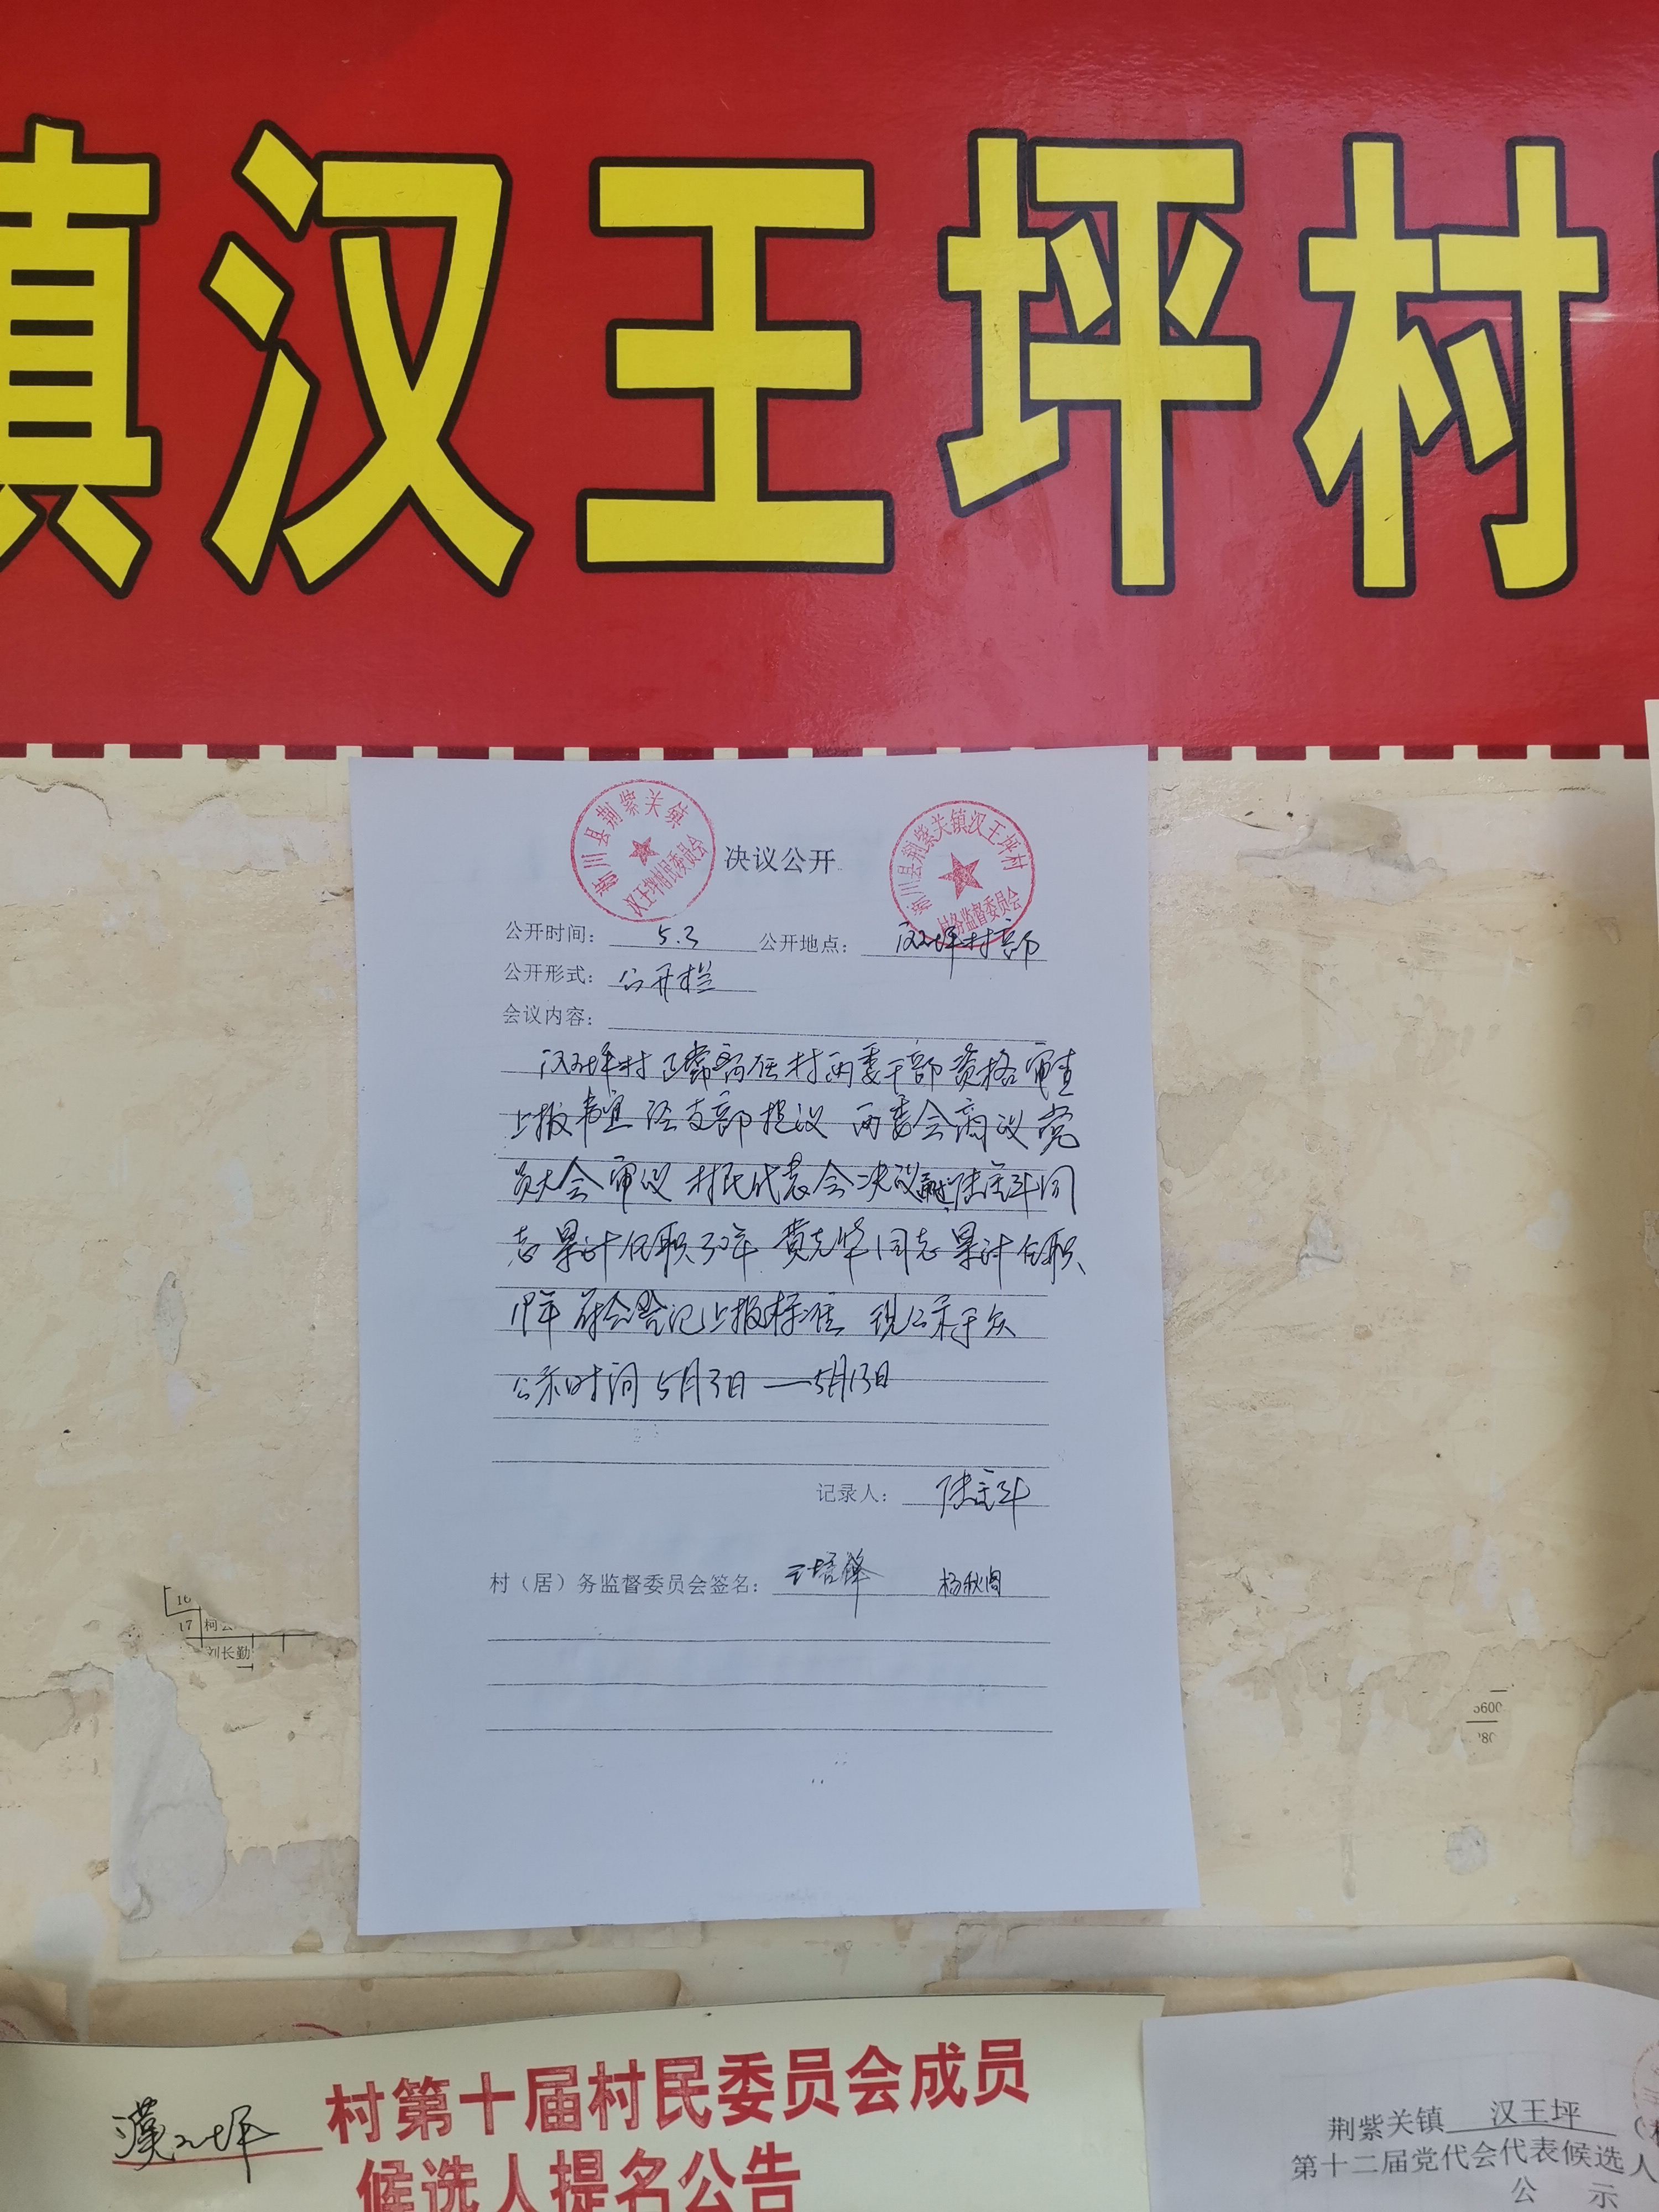 镇汉王坪村
淅川县荆紫关镇
汉王坪村村民委员会
决议公开
淅川县荆紫关镇汉王坪村
村务监督委员会
公开时间： 5.3 公开地点： 汉王坪村部
公开形式： 公开栏
会议内容：
汉王坪村正常离任村两委干部资格审查
上报事宜 经支部提议 两委会商议 党
员大会审议 村民代表会决议 同
志累计任职32年 黄克华同志累计任职
19年 符合登记上报标准 现公示于众
公示时间 5月3日——5月13日
记录人：
村（居）务监督委员会签名： 王培锋 杨秋阁
16
17 柯
刘长勤
漢王坪 村第十届村民委员会成员
候选人提名公告
荆紫关镇 汉王坪
第十二届党代会代表候选人
公 示